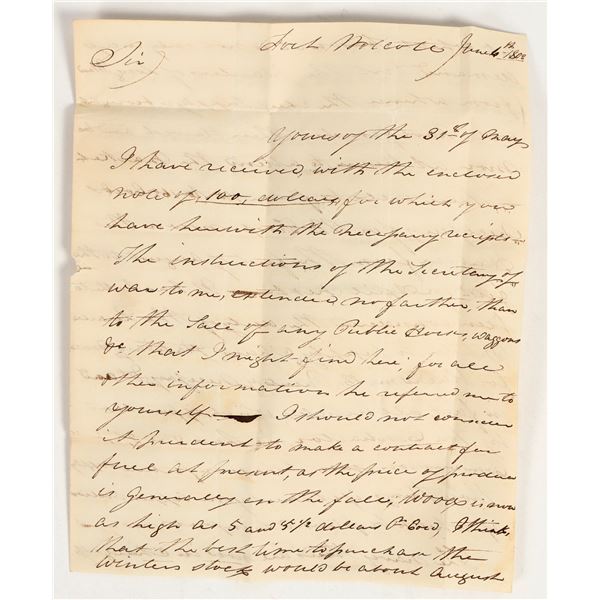 Fort Wolcott June 6th
Sir
Yours of the 31st of May
I have received with the enclosed
note of 100, dollars, for which you
have herewith the necessary receipts.
The instructions of the Secretary of
war to me, extended no farther, than
to the Sale of any Public Horses, waggons
&c that I might find here; for all
other information he referred me to
yourself — I should not consider
it prudent to make a contract for
fuel at present, as the price of produce
is Generally on the fall; Wood is now
as high as 5 and 5½ dollars Pr Cord, I think,
that the best time to purchase the
winters stock would be about August